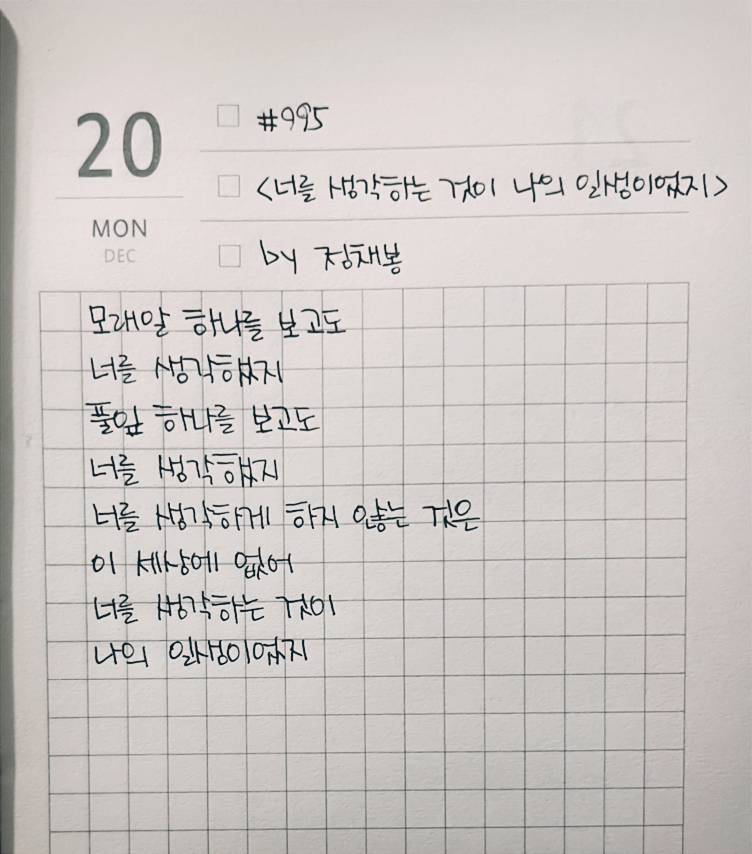 20
MON
DEC
#995
<너를 생각하는 것이 나의 일생이었지>
by 정채봉
모래알 하나를 보고도
너를 생각했지
풀잎 하나를 보고도
너를 생각했지
너를 생각하게 하지 않는 것은
이 세상에 없어
너를 생각하는 것이
나의 일생이었지